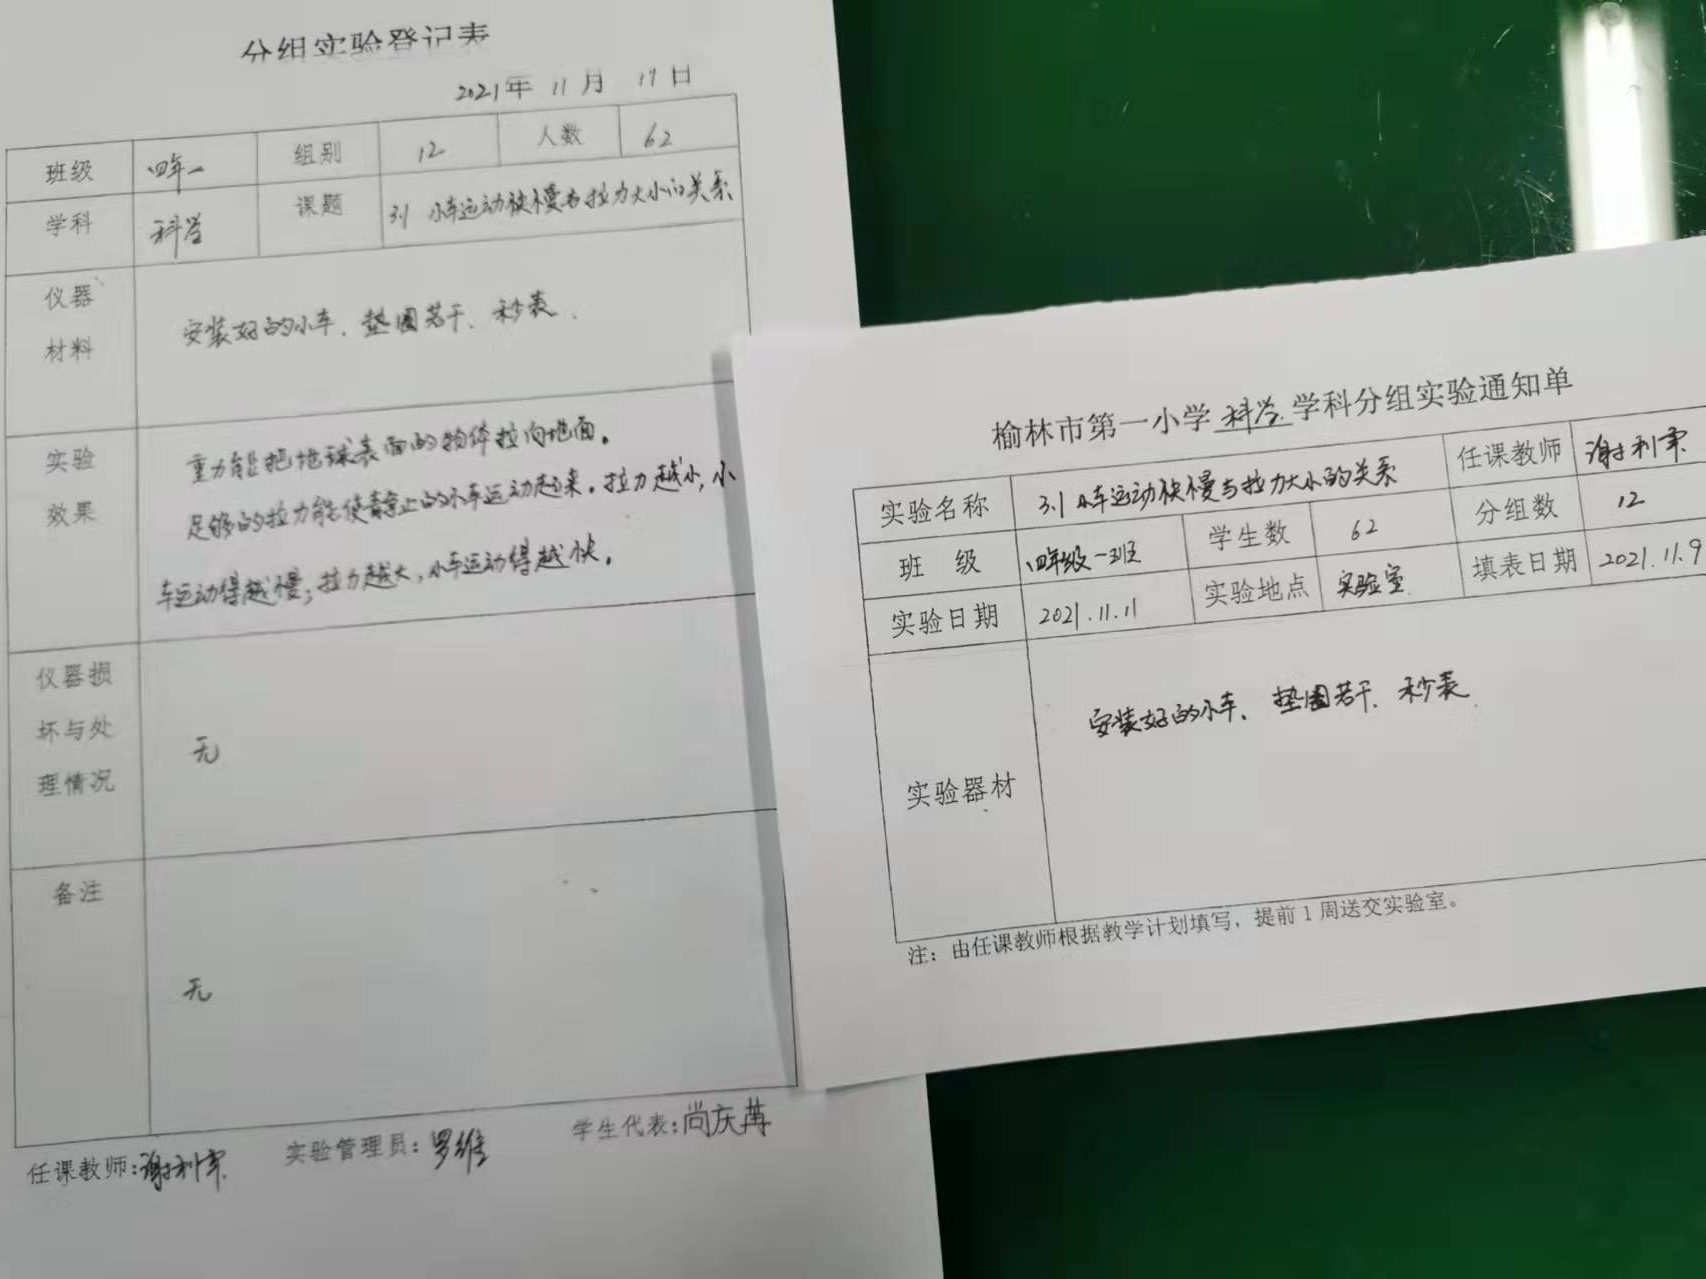 分组实验登记表
2021年 11月 17日
班级 四年一 组别 12 人数 62
学科 科学 课题 3.1 小车运动快慢与拉力大小的关系
仪器
材料
安装好的小车、垫圈若干、秒表.
实验
效果
重力能把地球表面的物体拉向地面。
足够的拉力能使静止的小车运动起来。拉力越小,小
车运动得越慢;拉力越大,小车运动得越快。
仪器损
坏与处
理情况
无
备注
无
任课教师:谢利军 实验管理员:罗维 学生代表:尚庆苒
榆林市第一小学 科学 学科分组实验通知单
实验名称 3.1 小车运动快慢与拉力大小的关系 任课教师 谢利军
班 级 四年级一班 学生数 62 分组数 12
实验日期 2021.11.11 实验地点 实验室 填表日期 2021.11.9
实验器材 安装好的小车、垫圈若干、秒表
注：由任课教师根据教学计划填写，提前1周送交实验室。